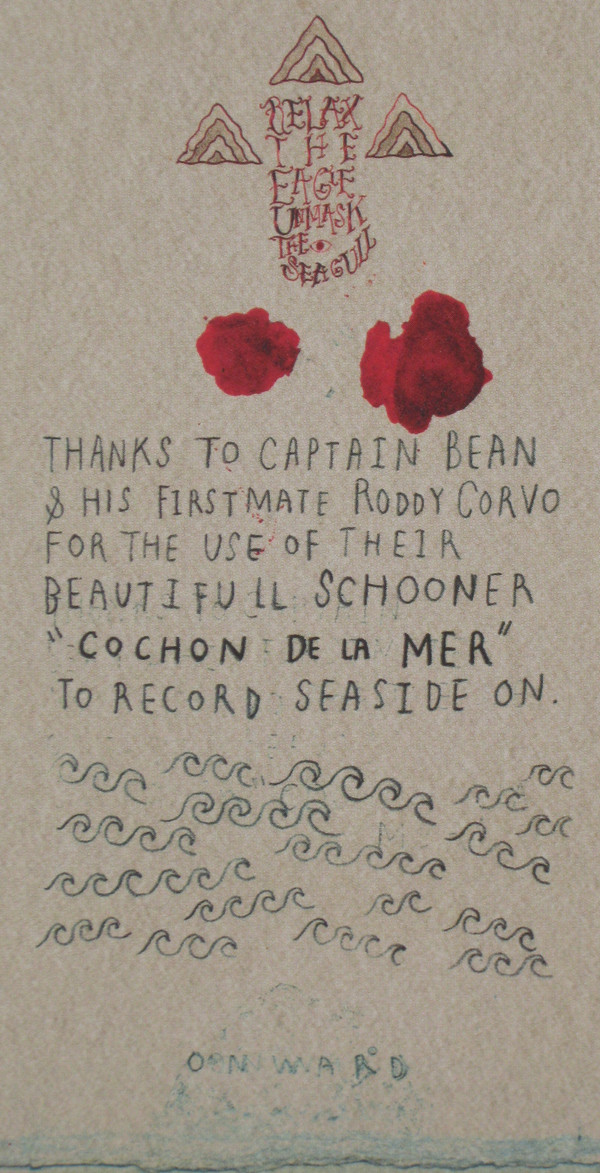 RELAX
THE
EAGLE
UNMASK
THE
SEAGULL
THANKS TO CAPTAIN BEAN
& HIS FIRSTMATE RODDY CORVO
FOR THE USE OF THEIR
BEAUTIFULL SCHOONER
"COCHON DE LA MER"
TO RECORD SEASIDE ON.
ONWARD